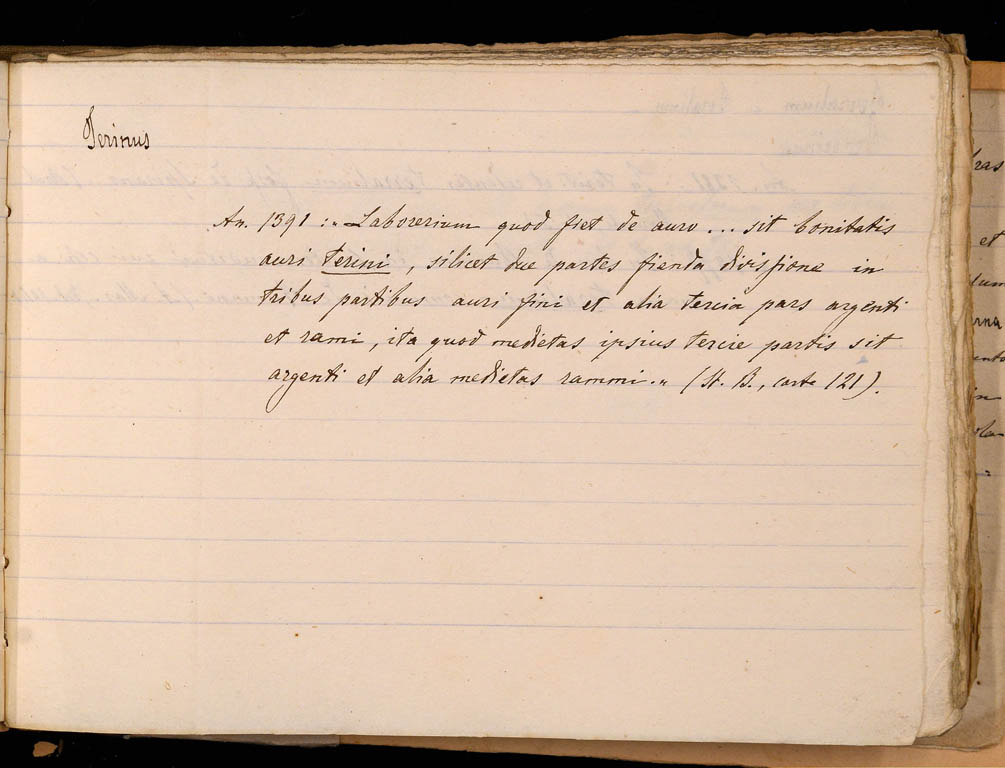 Terinus
An. 1391 : „ Laborerium quod fiet de auro ... sit bonitatis
auri terini , silicet due partes fienda divisjione in
tribus partibus auri fini et alia tercia pars argenti
et rami , ita quod medietas ipsius tercie partis sit
argenti et alia medietas rammi . „ ( H. B. , carte 121 ) .
ras
et